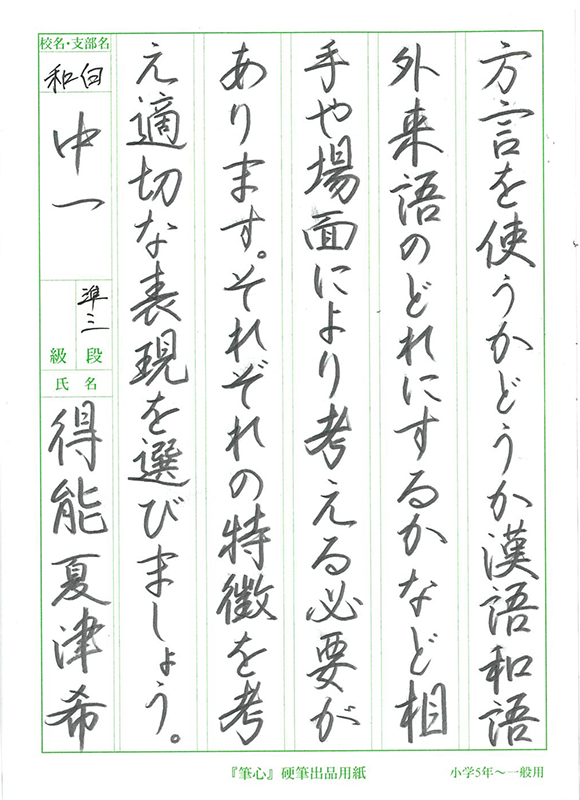 方言を使うかどうか漢語和語
外来語のどれにするかなど相
手や場面により考える必要が
あります。それぞれの特徴を考
え適切な表現を選びましょう。
校名・支部名
和白
中一
準三
段
級
氏名
得能夏津希
『筆心』硬筆出品用紙
小学5年～一般用